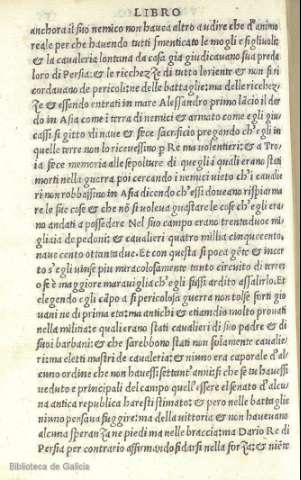 LIBRO
anchora il suo nemico non hauea altro audire che d'animo
reale per che hauendo tutti smenticato le mogli e figliuoli;
& la caualeria lontana da casa gia giudicauano sua preda
loro di Persia: & le ricchezze di tutto loriente & non si ri
cordauano de pericoli: ne delle battaglie: ma delle ricchez-
ze & essendo entrati in mare Alessandro primo lācio il da
do in Asia come i terra di nemici & armato come egli giu
cassi si gitto di naue & fece sacrificio pregando ch'egli in
quelle terre non lo riceuessino p Re ma uolentieri; & a Tro
ia fece memoria alle sepolture di quegli i quali erano stati
morti nella guerra poi cercando i nemici uieto ch'i cauali
eri non robbassino in Asia dicendo ch'essi doueano risparma
re le sue cose & che nō si uoleua guastare le cose ch'egli era
no andati a possedere Nel suo campo erano trentadue mi
gliaia de pedoni; & caualieri quatro millia cinquecento,
naue cento ottantadue. Et con questa si poca gēte & incer
to s'egli uinse piu miracolosamente tanto circuito di terre;
o se è maggiore marauiglia ch'egli fussi ardito assalirlo. Et
elegendo egli cāpo a si pericolosa guerra non tolse forti gio
uani ne di prima eta: ma antichi & etiamdio molto prouati
nella militia: & qualierano stati caualieri di suo padre & di
suoi barbani: & che sarebbono stati non solamente caualie
ri: ma eletti mastri de caualeria; & niuno era caporale d'al
cuno ordine che non hauessi settante anni: si che se tu hauessi
ueduto e principali del campo quell'essere el senato d'alcu
na antica republica haresti stimato: & pero nelle battaglie
niuno pensaua fuggire: ma della uittoria & non haueuano
alcuna speranza ne piedi ma nelle braccia: ma Dario Re di
Persia per contrario affirmando fidarsi nella forza: & niēte
Biblioteca de Galicia